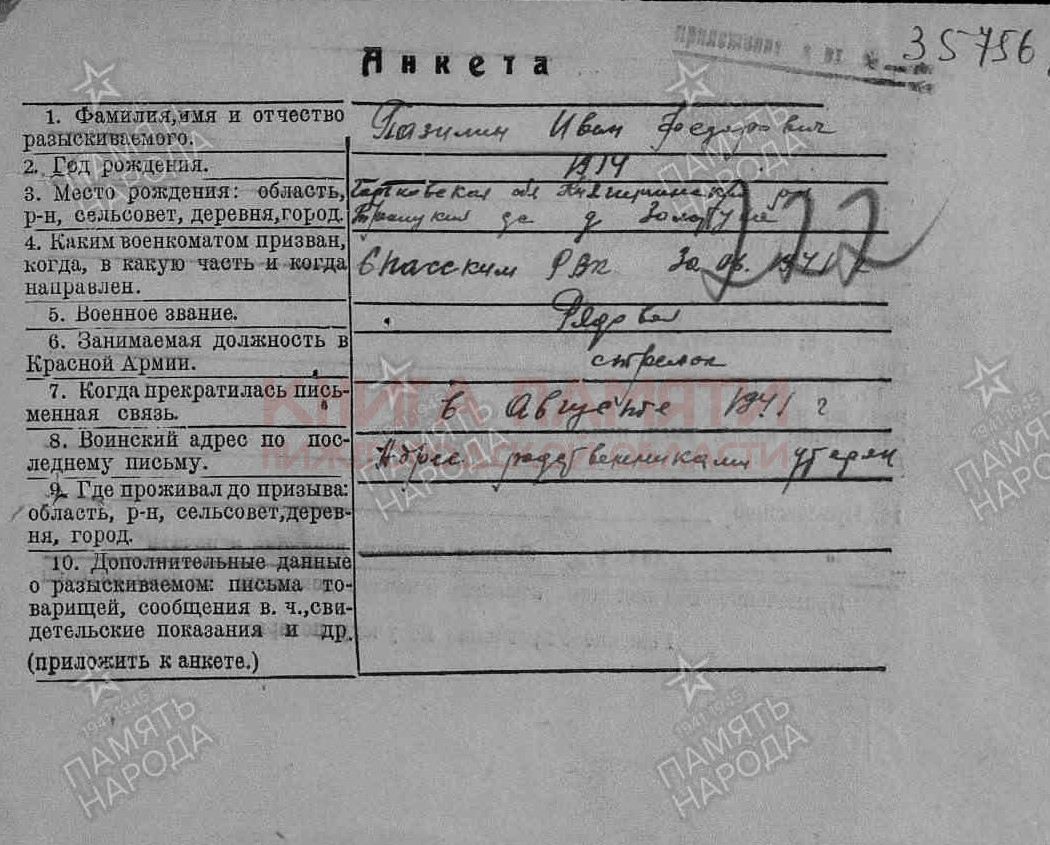 35756
приложение к вх №
Анкета
1. Фамилия, имя и отчество разыскиваемого.
Иван Федорович
2. Год рождения.
1914
3. Место рождения: область, р-н, сельсовет, деревня, город.
обл
д
4. Каким военкоматом призван, когда, в какую часть и когда направлен.
Спасским РВК 1941 г
222
5. Военное звание.
Рядовой
6. Занимаемая должность в Красной Армии.
стрелок
7. Когда прекратилась письменная связь.
в Августе 1941 г
8. Воинский адрес по последнему письму.
Адрес родственниками утерян
9. Где проживал до призыва: область, р-н, сельсовет, деревня, город.
10. Дополнительные данные о разыскиваемом: письма товарищей, сообщения в. ч., свидетельские показания и др. (приложить к анкете.)
КНИГА ПАМЯТИ
НИЖЕГОРОДСКОЙ ОБЛАСТИ
1941 1945
ПАМЯТЬ
НАРОДА